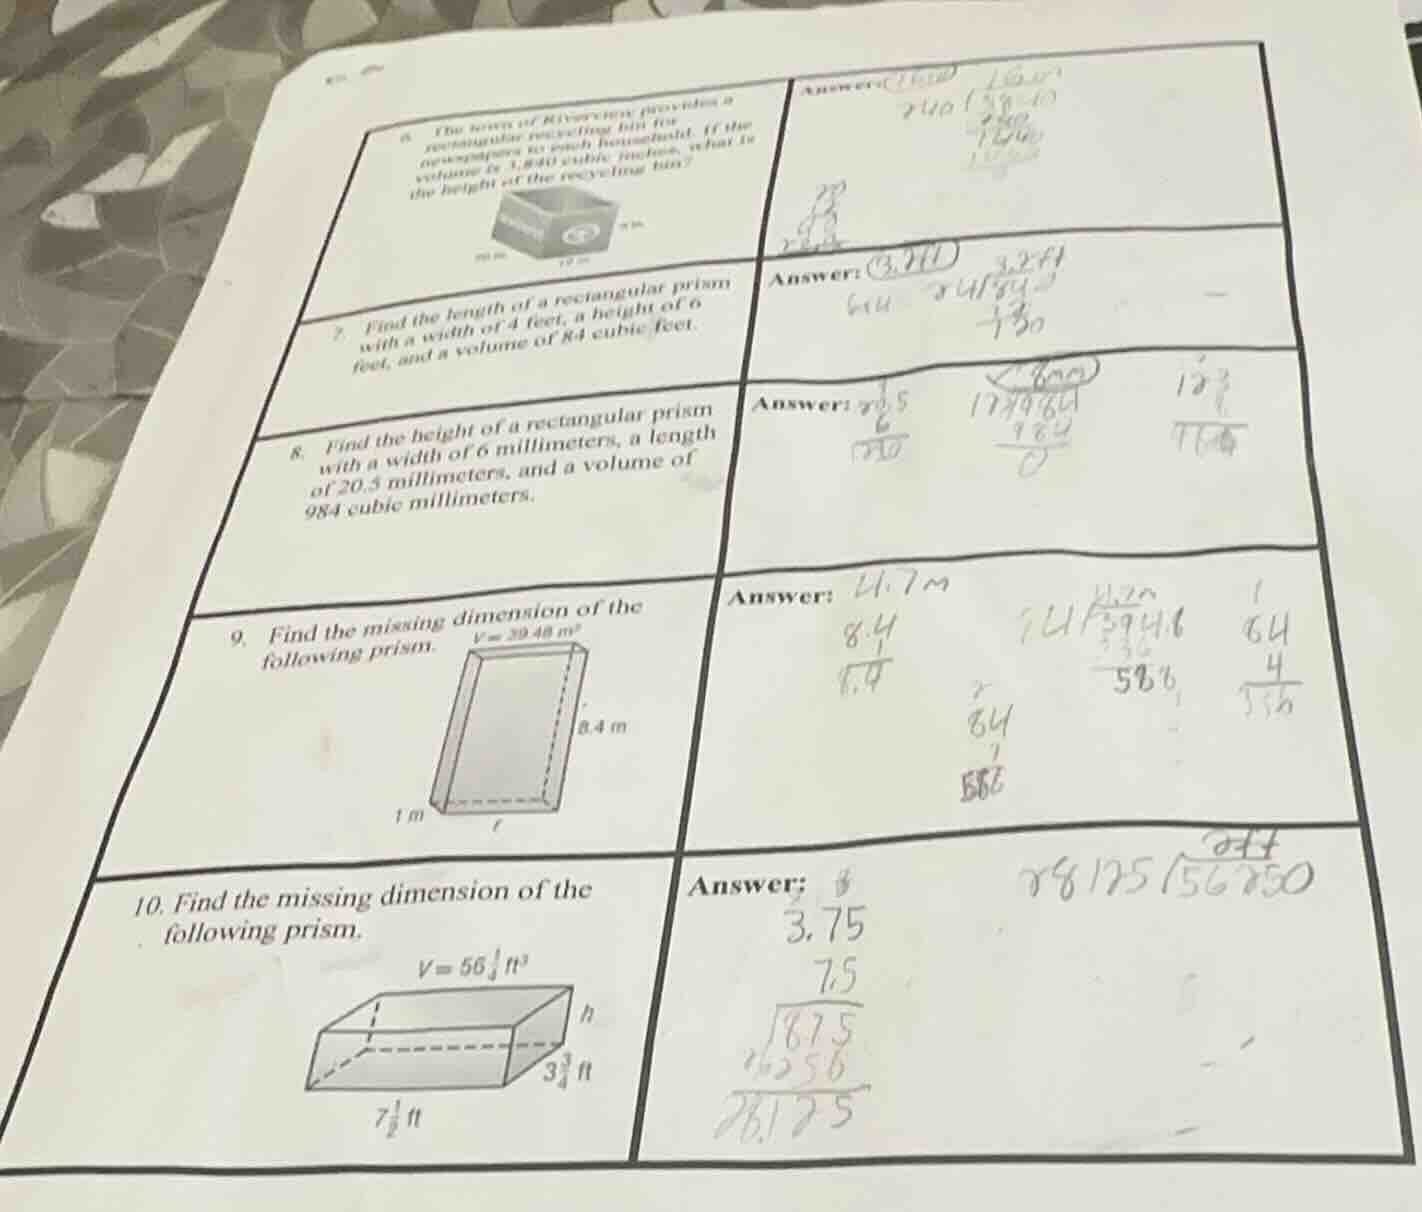 6. The town of Riverview provides a
rectangular recycling bin for
newspapers to each household. If the
volume is 3,840 cubic inches, what is
the height of the recycling bin?
Answer:
16in
240
3840
240
1440
7. Find the length of a rectangular prism
with a width of 4 feet, a height of 6
feet, and a volume of 84 cubic feet.
Answer: 3.2ft
3.2ft
6x4
24 84
120
8. Find the height of a rectangular prism
with a width of 6 millimeters, a length
of 20.5 millimeters, and a volume of
984 cubic millimeters.
Answer:
8mm
20.5
6
123 984
984
0
123
8
9. Find the missing dimension of the
following prism.
V = 39.48 m³
8.4 m
1 m
ℓ
Answer: 4.7m
8.4
1
8.4
4.7m
588
84
4
336
84
7
10. Find the missing dimension of the
following prism.
V = 56 1/4 ft³
h
3 3/4 ft
7 1/2 ft
Answer:
3.75
7.5
1875
28.125
2ft
28125 56250